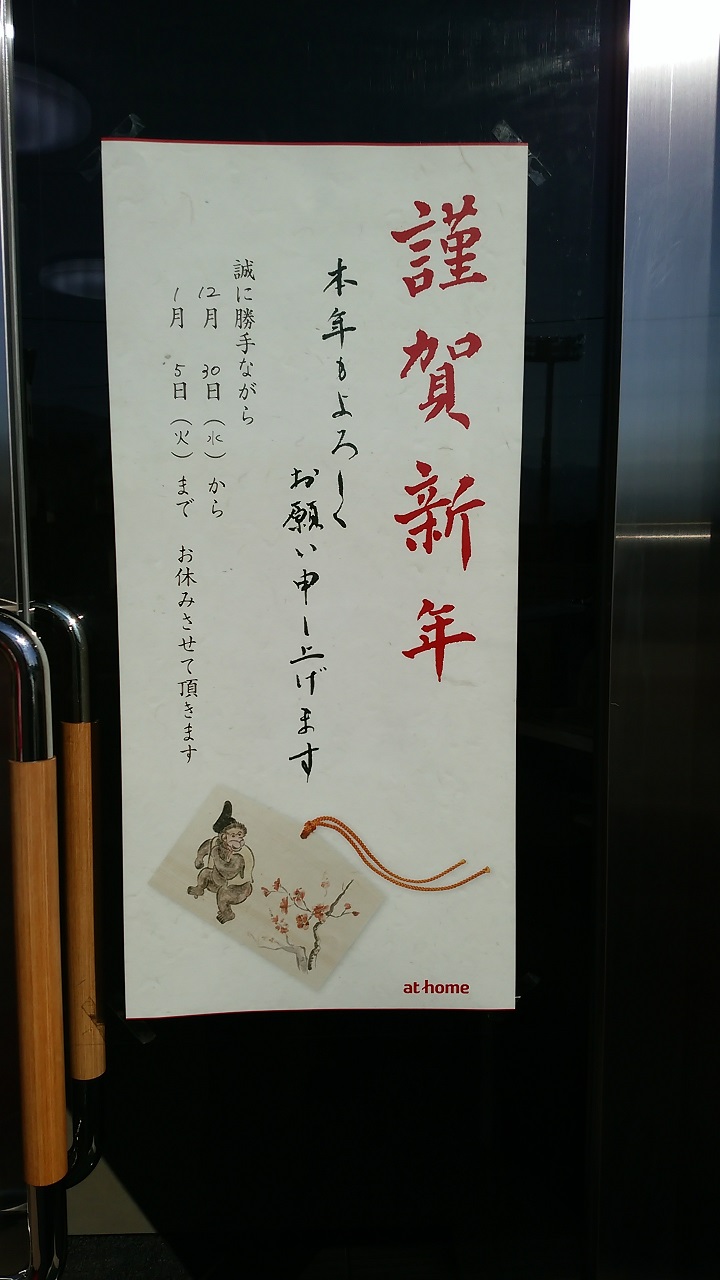 謹賀新年
本年もよろしく
お願い申し上げます
誠に勝手ながら
12月 30日（水）から
1月 5日（火）まで お休みさせて頂きます
at home